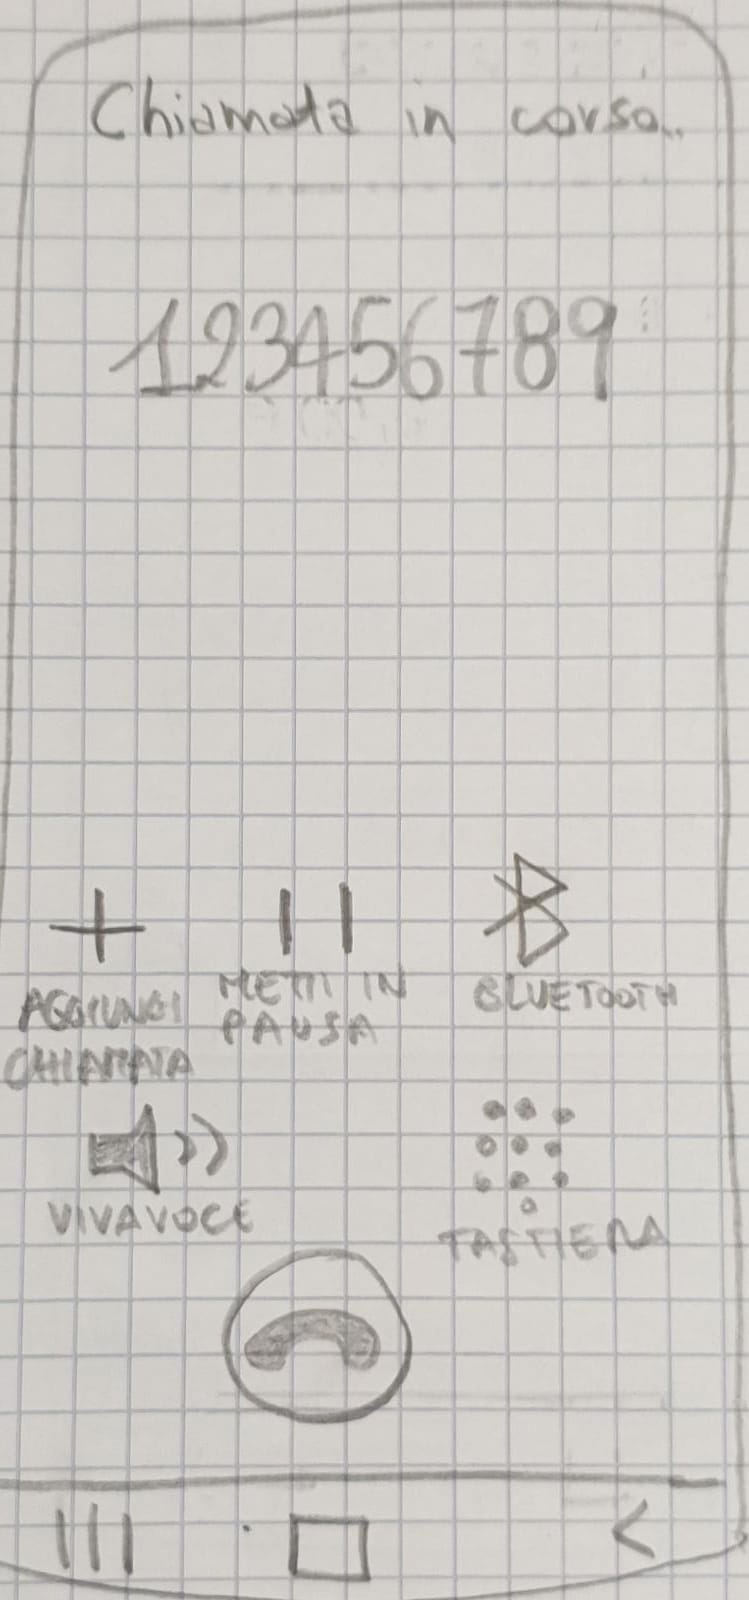 Chiamata in corso..
123456789
AGGIUNGI
CHIAMATA
METTI IN
PAUSA
BLUETOOTH
VIVAVOCE
TASTIERA